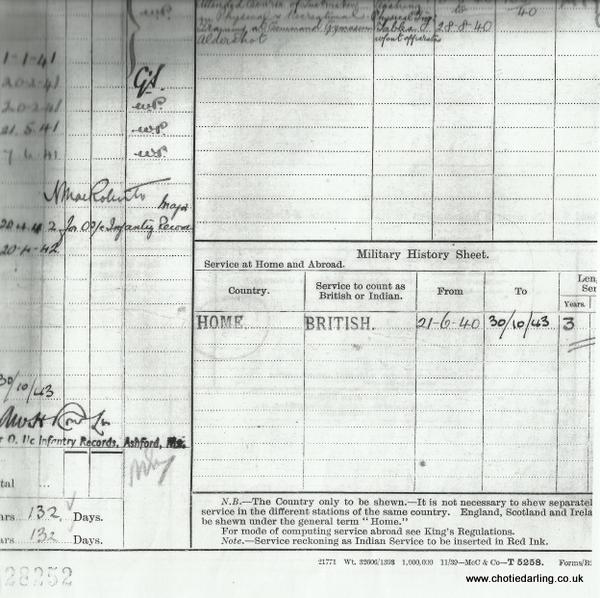 Physical & Recreational
Training at Command Gymnasium
Aldershot
Physical Trg
Tables
without apparatus
28-8-40
40
1-1-41
20-2-41
20-2-41
W.P.
21.5.41
W.P.
7.6.41
W.P.
Major
20-4-42 for O/c Infantry Records
20-4-42
30/10/43
r O. i/c Infantry Records, Ashford, Mx.
tal
ars 132 Days.
ars 132 Days.
28252
Military History Sheet.
Service at Home and Abroad.
Country.
Service to count as
British or Indian.
From
To
Len
Ser
Years.
HOME. BRITISH. 21-6-40 30/10/43 3
N.B.—The Country only to be shewn.—It is not necessary to shew separatel
service in the different stations of the same country. England, Scotland and Irela
be shewn under the general term "Home."
For mode of computing service abroad see King's Regulations.
Note.—Service reckoning as Indian Service to be inserted in Red Ink.
21771 Wt. 32606/1393 1,000,000 11/39—McC & Co—T 5258. Forms/B
www.chotiedarling.co.uk